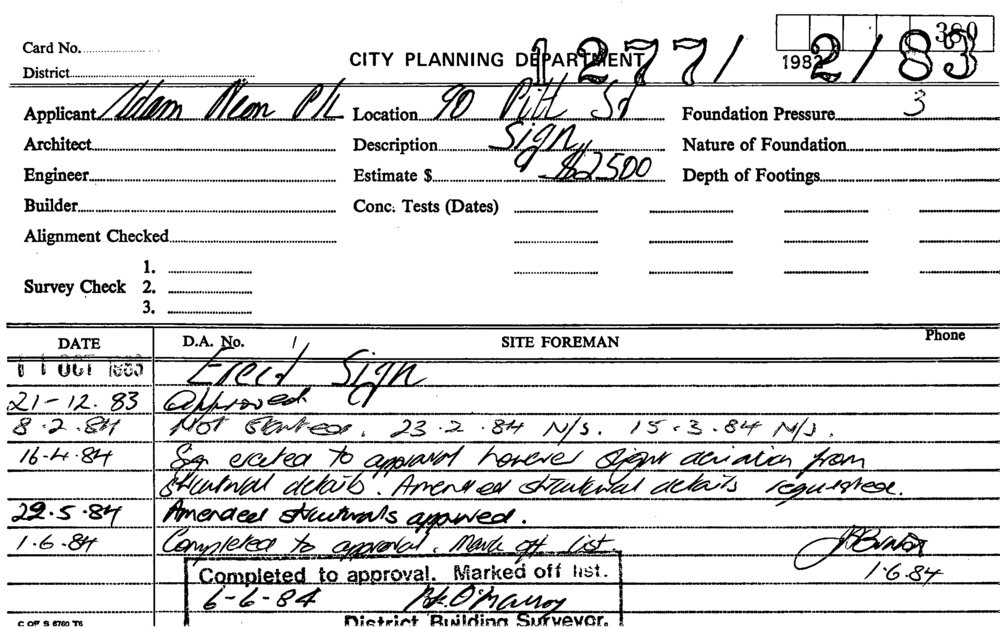 380
Card No.
CITY PLANNING DEPARTMENT 1277/ 2/83
198
District
Applicant Adam Neon P/L Location 90 Pitt St Foundation Pressure 3
Architect Description Sign Nature of Foundation
Engineer Estimate $ $2500 Depth of Footings
Builder Conc. Tests (Dates)
Alignment Checked
1.
Survey Check 2.
3.
DATE D.A. No. SITE FOREMAN Phone
11 OCT 1983 Erect Sign
21-12.83 Approved
8.2.84 Not started. 23.2.84 N/S. 15.3.84 N/S.
16-4.84 Sign erected to approval however slight deviation from
structural details. Amended structural details requested.
22.5.84 Amended structurals approved.
1.6.84 Completed to approval. Mark off list.
1.6.84
Completed to approval. Marked off list.
6-6-84
District Building Surveyor.
C OF S 6760 T6